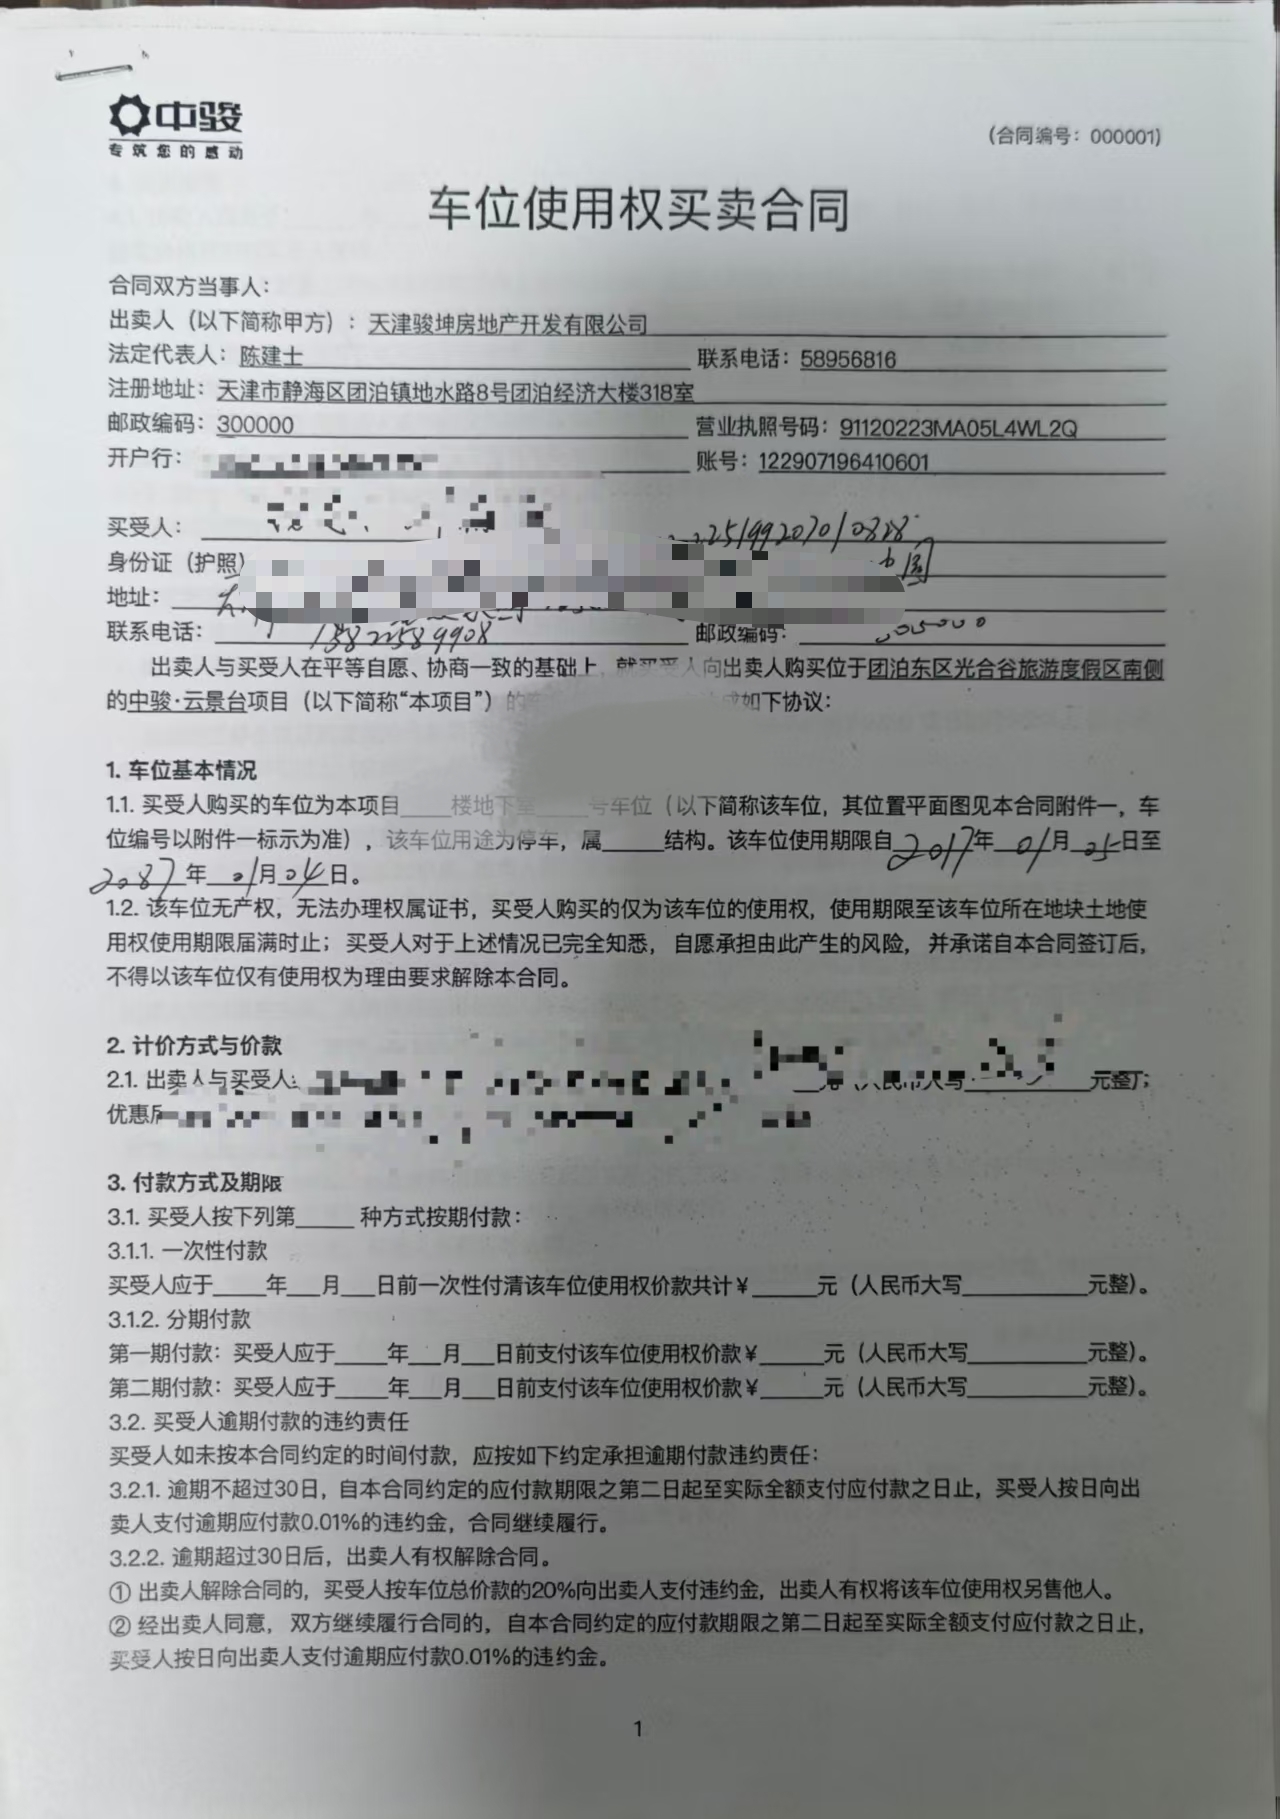 中骏
专筑您的感动
(合同编号：000001)
车位使用权买卖合同
合同双方当事人：
出卖人（以下简称甲方）：天津骏坤房地产开发有限公司
法定代表人：陈建士 联系电话：58956816
注册地址：天津市静海区团泊镇地水路8号团泊经济大楼318室
邮政编码：300000 营业执照号码：91120223MA05L4WL2Q
开户行： 账号：122907196410601
买受人：
身份证（护照）
地址：
联系电话：15822589908 邮政编码：
出卖人与买受人在平等自愿、协商一致的基础上，就买受人向出卖人购买位于团泊东区光合谷旅游度假区南侧
的中骏·云景台项目（以下简称“本项目”）的 如下协议：
1. 车位基本情况
1.1. 买受人购买的车位为本项目____楼地下室____号车位（以下简称该车位，其位置平面图见本合同附件一，车
位编号以附件一标示为准），该车位用途为停车，属____结构。该车位使用期限自2017年01月05日至
2087年01月04日。
1.2. 该车位无产权，无法办理权属证书，买受人购买的仅为该车位的使用权，使用期限至该车位所在地块土地使
用权使用期限届满时止；买受人对于上述情况已完全知悉，自愿承担由此产生的风险，并承诺自本合同签订后，
不得以该车位仅有使用权为理由要求解除本合同。
2. 计价方式与价款
2.1. 出卖人与买受人 元（人民币大写 元整）；
优惠
3. 付款方式及期限
3.1. 买受人按下列第____ 种方式按期付款：
3.1.1. 一次性付款
买受人应于____年__月__日前一次性付清该车位使用权价款共计￥____元（人民币大写________元整）。
3.1.2. 分期付款
第一期付款：买受人应于____年__月__日前支付该车位使用权价款￥____元（人民币大写________元整）。
第二期付款：买受人应于____年__月__日前支付该车位使用权价款￥____元（人民币大写________元整）。
3.2. 买受人逾期付款的违约责任
买受人如未按本合同约定的时间付款，应按如下约定承担逾期付款违约责任：
3.2.1. 逾期不超过30日，自本合同约定的应付款期限之第二日起至实际全额支付应付款之日止，买受人按日向出
卖人支付逾期应付款0.01%的违约金，合同继续履行。
3.2.2. 逾期超过30日后，出卖人有权解除合同。
① 出卖人解除合同的，买受人按车位总价款的20%向出卖人支付违约金，出卖人有权将该车位使用权另售他人。
② 经出卖人同意，双方继续履行合同的，自本合同约定的应付款期限之第二日起至实际全额支付应付款之日止，
买受人按日向出卖人支付逾期应付款0.01%的违约金。
1